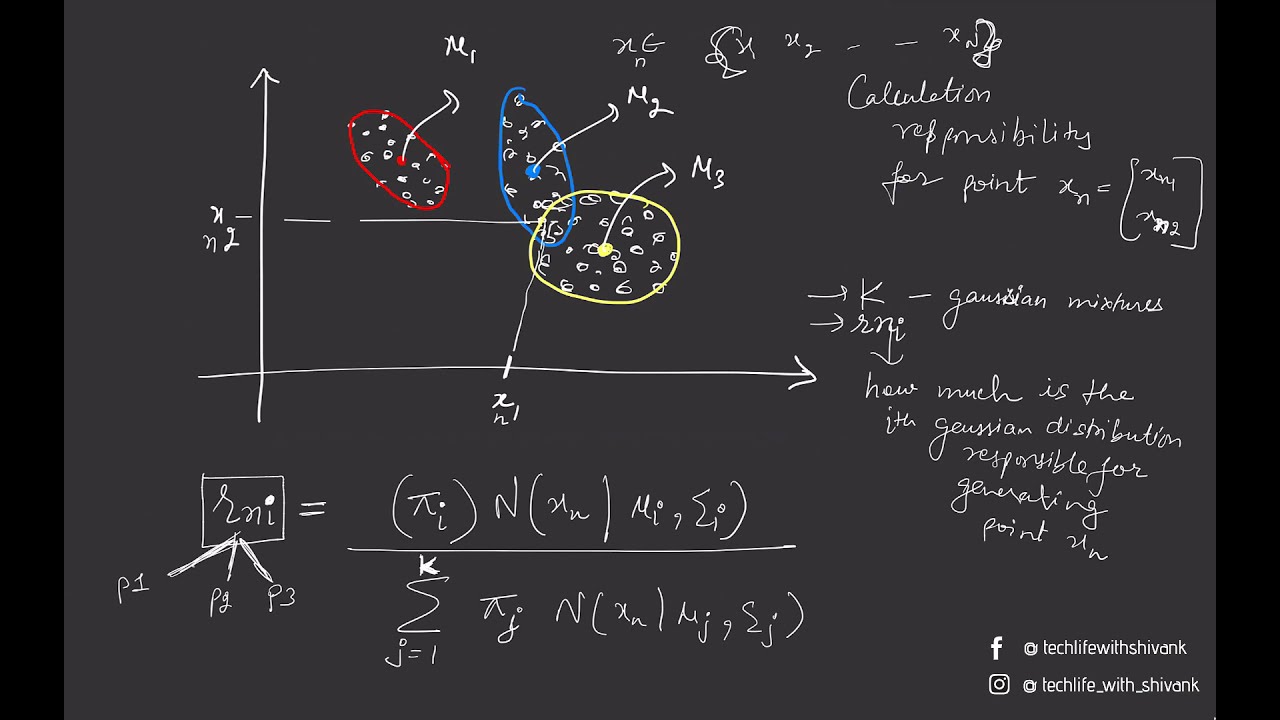 μ1
xn ∈ {x x2 - - xN}
μ2
μ3
Calculation
responsibility
for point xn = [xn1
xn2]
xn2
→ K – gaussian mixtures
→ rni
xn1
how much is the
ith gaussian distribution
responsible for
generating
point xn
rni = (πi) N(xn | μi, Σi)
K
Σ πj N(xn | μj, Σj)
j=1
p1 p2 p3
@ techlifewithshivank
@ techlife_with_shivank